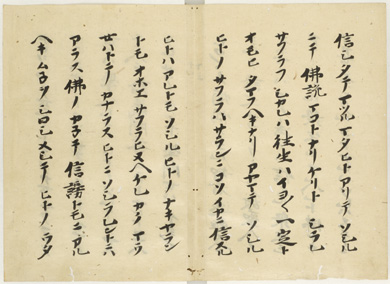 信シタテマツルマタヒトアリテソシル
ニテ佛説マコトナリケリトシラレ
サフラフシカレハ往生ハイヨ〱一定ト
オモヒタマフヘキナリアヤマテソシル
ヒトノサフラハサランニコソイカニ信スル
ヒトハアレトモソシルヒトノナキヤラン
トモオホエサフラヒヌヘケレカクマウ
セハトテカナラスヒトニソシラレントニハ
アラス佛ノカネテ信謗トモニアル
ヘキムネヲシロシメシテヒトノウタカ